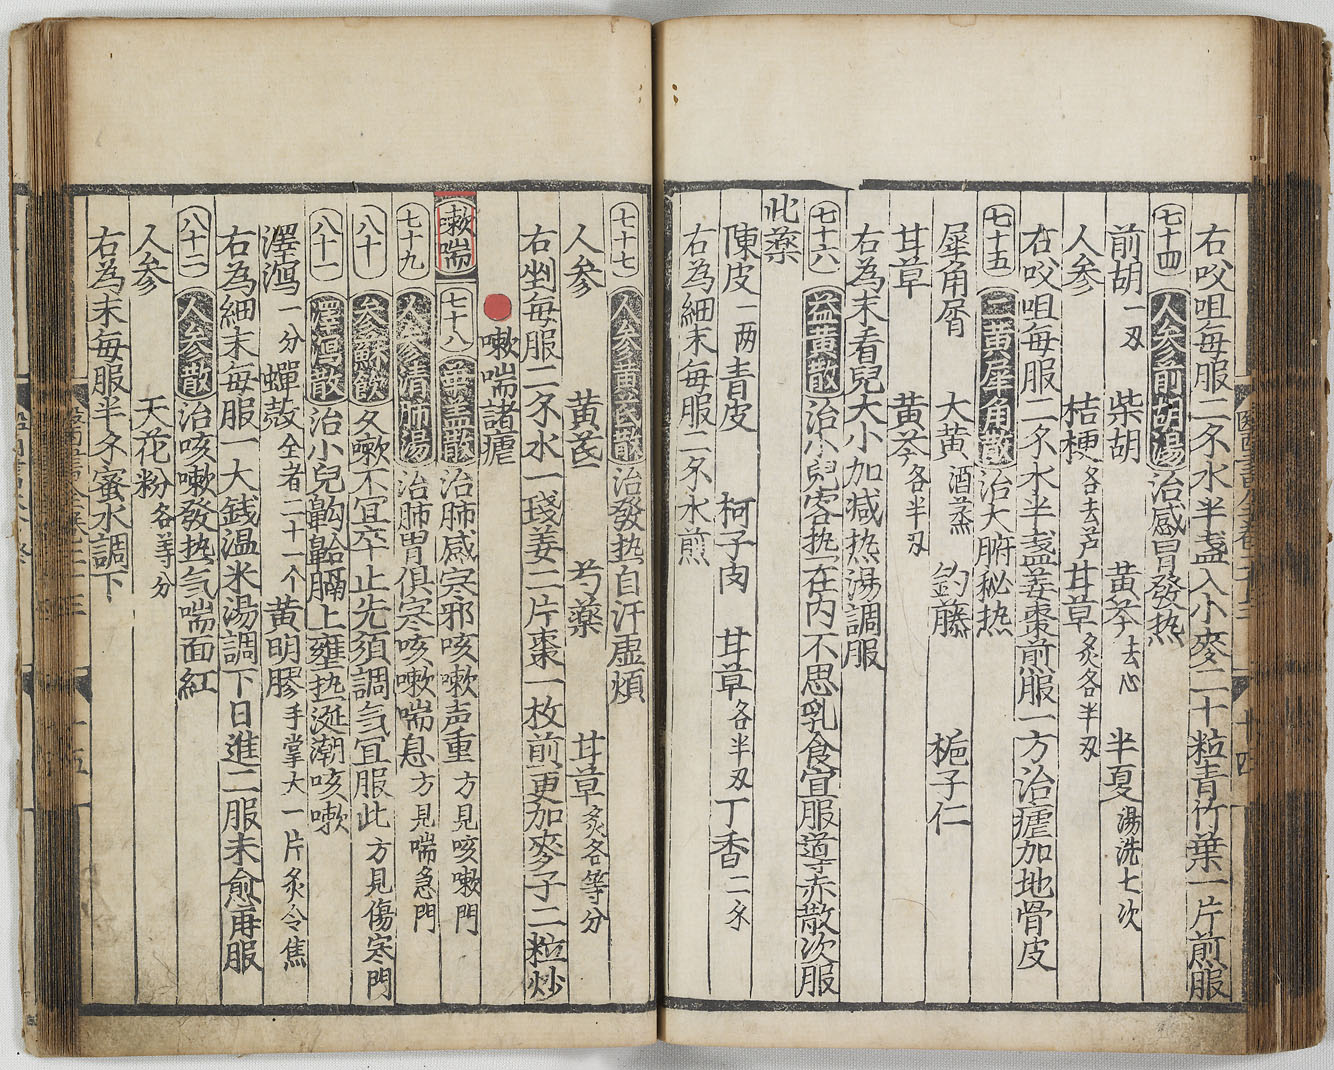 右㕮咀每服二𠆤水半盞入小麥二十粒青竹葉一片煎服
七十四 人參前胡湯 治感冒發热
前胡一刄 柴胡 黄芩去心 半夏湯洗七次
人參 桔梗各去芦 甘草炙各半刄
右㕮咀每服二𠆤水半盞姜棗煎服一方治瘧加地骨皮
七十五 三黄犀角散 治大腑秘热
犀角屑 大黄酒蒸 釣藤 梔子仁
甘草 黄芩各半刄
右為末看兒大小加减热湯調服
七十六 益黄散 治小兒客热在内不思乳食宜服導赤散次服
此藥
陳皮一两 青皮 柯子肉 甘草各半刄 丁香二𠆤
右為細末每服二𠆤水煎
七十七 人參黄芪散 治發热自汗虚煩
人參 黄芪 芍藥 甘草炙各等分
右剉每服二𠆤水一琖姜二片棗一枚前更加麥子二粒炒
嗽喘諸瘧
嗽喘 七十八 華盖散 治肺感寒邪咳嗽声重方見咳嗽門
七十九 人參清肺湯 治肺胃俱寒咳嗽喘息方見喘急門
八十 參蘇飲 久嗽不宜卒止先須調氣宜服此方見傷寒門
八十一 澤瀉散 治小兒齁䶎膈上壅热涎潮咳嗽
澤瀉一分 蟬殻全者二十一个 黄明膠手掌大一片炙令焦
右為細末每服一大錢温米湯調下日進二服未愈再服
八十二 人參散 治咳嗽發热氣喘面紅
人參 天花粉各等分
右為末每服半𠆤蜜水調下